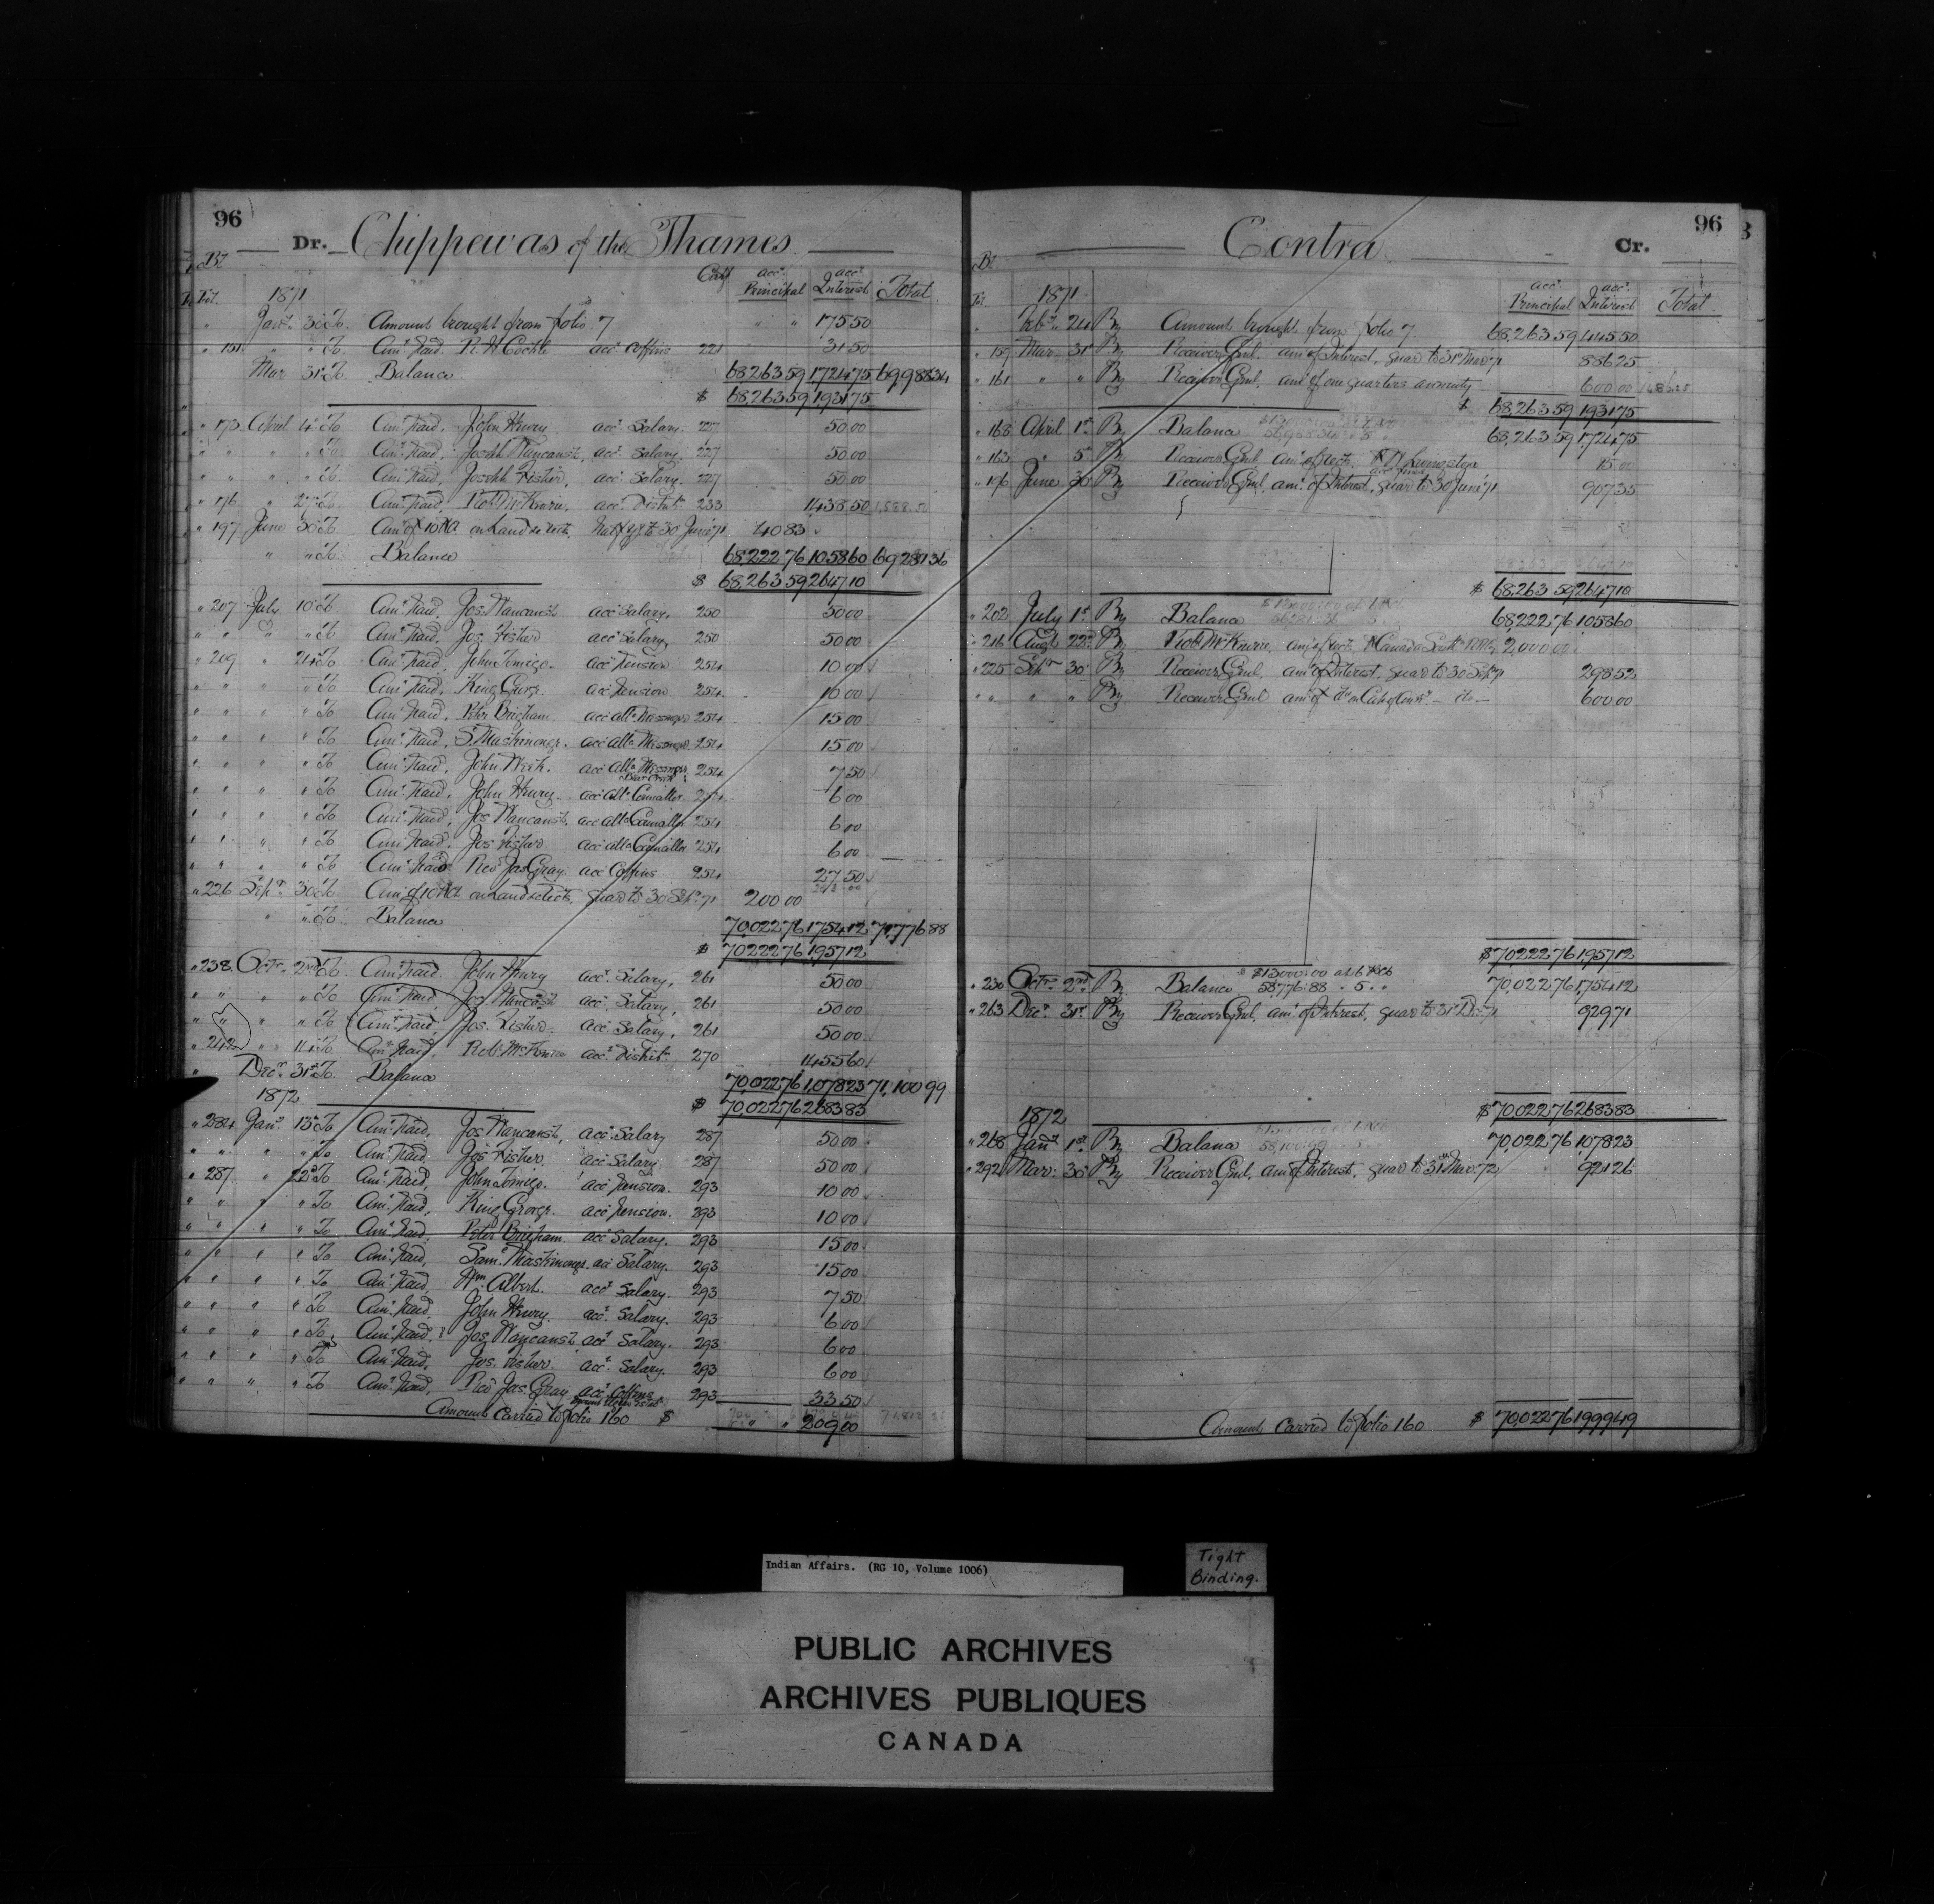 96
Dr. Chippewas of the Thames
Bt Fol. 1871 Certf acct. Principal acct. Interest Total
" Jany. 30 To Amount brought from folio 7 " " 175 50
" 151 " " To Amt. Paid. acct Coffins 221 31 50
Mar 31st To Balance 68,263 59 1724 75 69,988 34
$ 68,263 59 1,931 75
" 173 April 4th To Amt. Paid, John Henry acct. Salary. 227 50 00
" " " " To Amt. Paid, acct. Salary. 227 50 00
" " " " To Amt. Paid, Joseph Fisher, acc. Salary. 227 50 00
" 176 " 27th To Amt. Paid, Robt McKenzie, acc. Distbn. 233 1438.50 1,588.50
" 197 June 30th To Amt of 10 P Ct on Land to 30 June 71 40 83
" " To Balance 68,222 76 1058 60 69,281 36
$ 68,263 59 2647 10
" 207 July 10th To Amt Paid, acct Salary, 250 50 00
" " " " To Amt Paid, Jos. Fisher acct Salary, 250 50 00
" 209 " 24th To Amt. Paid, John Tomigo. acct Pension 254 10 00
" " " " To Amt Paid, King George. acct Pension 254 10 00
" " " " To Amt Paid, Peter Brigham acct Allce Messenger 254 15 00
" " " " To Amt. Paid, S. Maskinonge. acct Allce Messenger 254 15 00
" " " " To Amt. Paid, John acct Allce Messenger Bear Creek 254 7 50
" " " " To Amt. Paid, John Henry acct Allce Councillor 254 6 00
" " " " To Amt. Paid, acct Allce Councillor 254 6 00
" " " " To Amt Paid, Jos Fisher acct Allce Councillor 254 6 00
" " " " To Amt Paid Revd Jas Gray acct Coffins 254 27 50
" 226 Sepr. 30th To Amt of 10 P Ct on Land quar to 30 Sepr 71 200 00
" " To Balance 70,022 76 1754 12 71,776 88
$ 70,222 76 1,957 12
" 238 Octr. 2nd To Amt Paid. John Henry acct. Salary, 261 50 00
" " " " To Amt Paid, acct. Salary, 261 50 00
" " " " To Amt. Paid, Jos. Fisher. acct. Salary, 261 50 00
" 242 " 14th To Amt. Paid, Robt McKenzie acct. Distbn. 270 1,455 60
" Decr. 31st To Balance 70,022 76 1,078 23 71,100 99
1872 $ 70,022 76 2683 83
" 284 Jany. 13th To Amt. Paid, acct. Salary 287 50 00
" " " " To Amt. Paid, Jos Fisher, acct Salary. 287 50 00
" 287 " 22d To Amt. Paid, John Tomigo. acct Pension. 293 10 00
" " " " To Amt. Paid, King George. acct Pension. 293 10 00
" " " " To Amt. Paid, Peter Brigham acct Salary. 293 15 00
" " " " To Amt. Paid, Saml. Maskinonge. acct Salary. 293 15 00
" " " " To Amt. Paid, Wm Albert. acct Salary. 293 7 50
" " " " To Amt. Paid, John Henry. acct. Salary. 293 6 00
" " " " To Amt. Paid, acct Salary. 293 6 00
" " " " To Amt. Paid, Jos. Fisher. acct. Salary. 293 6 00
" " " " To Amt. Paid, Revd Jas. Gray acct. Coffins 293 33.50
Amount carried to folio 160 $ " " 209 00
96
Contra Cr.
Bt Fol. 1871 acct. Principal acct. Interest Total
" Feby. 24 By Amount brought from folio 7 68,263 59 445 50
" 157 Mar. 31st By Receiver Genl. amt of Interest, quar to 31st Mar 71 886 25
" 161 " " By Receiver Genl, amt of one quarters annuity 600 00 1486.25
$ 68,263 59 1931 75
" 168 April 1st By Balance 68,263 59 1,724 75
" 163 " 5th By Receiver Genl amt of Livingston acct fines 15 00
" 196 June 30 By Receiver Genl, amt. of Interest, quar to 30 June 71 907 35
$ 68,263 59 2647 10
" 202 July 1st By Balance 68,222 76 1,058 60
" 216 Augt 22nd By Robt McKenzie, amt of Canada South. 2,000 00
" 225 Sepr. 30 By Receiver Genl, amt of Interest, quar to 30 Sep 71 298 52
" " " " By Receiver Genl amt of — do — 600 00
$ 70,222 76 1,957 12
" 230 Octr. 2nd By Balance $13000.00 at 6 P Ct 58,776.88 " 5 " " 70,022 76 1,754 12
" 263 Decr. 31st By Receiver Genl, amt of Interest, quar to 31st Dec 71 929 71
$ 70,022 76 2683 83
1872
" 268 Jany 1st By Balance 58,100.99 " 5 " " 70,022 76 1,078 23
" 292 Mar. 30 By Receiver Genl, amt of Interest, quar to 31st Mar. 72 921 26
Amount carried to folio 160 $ 70,022 76 1,999 49
Indian Affairs. (RG 10, Volume 1006)
Tight
Binding.
PUBLIC ARCHIVES
ARCHIVES PUBLIQUES
CANADA